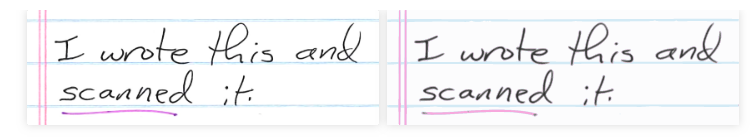 I wrote this and
scanned it.
I wrote this and
scanned it.